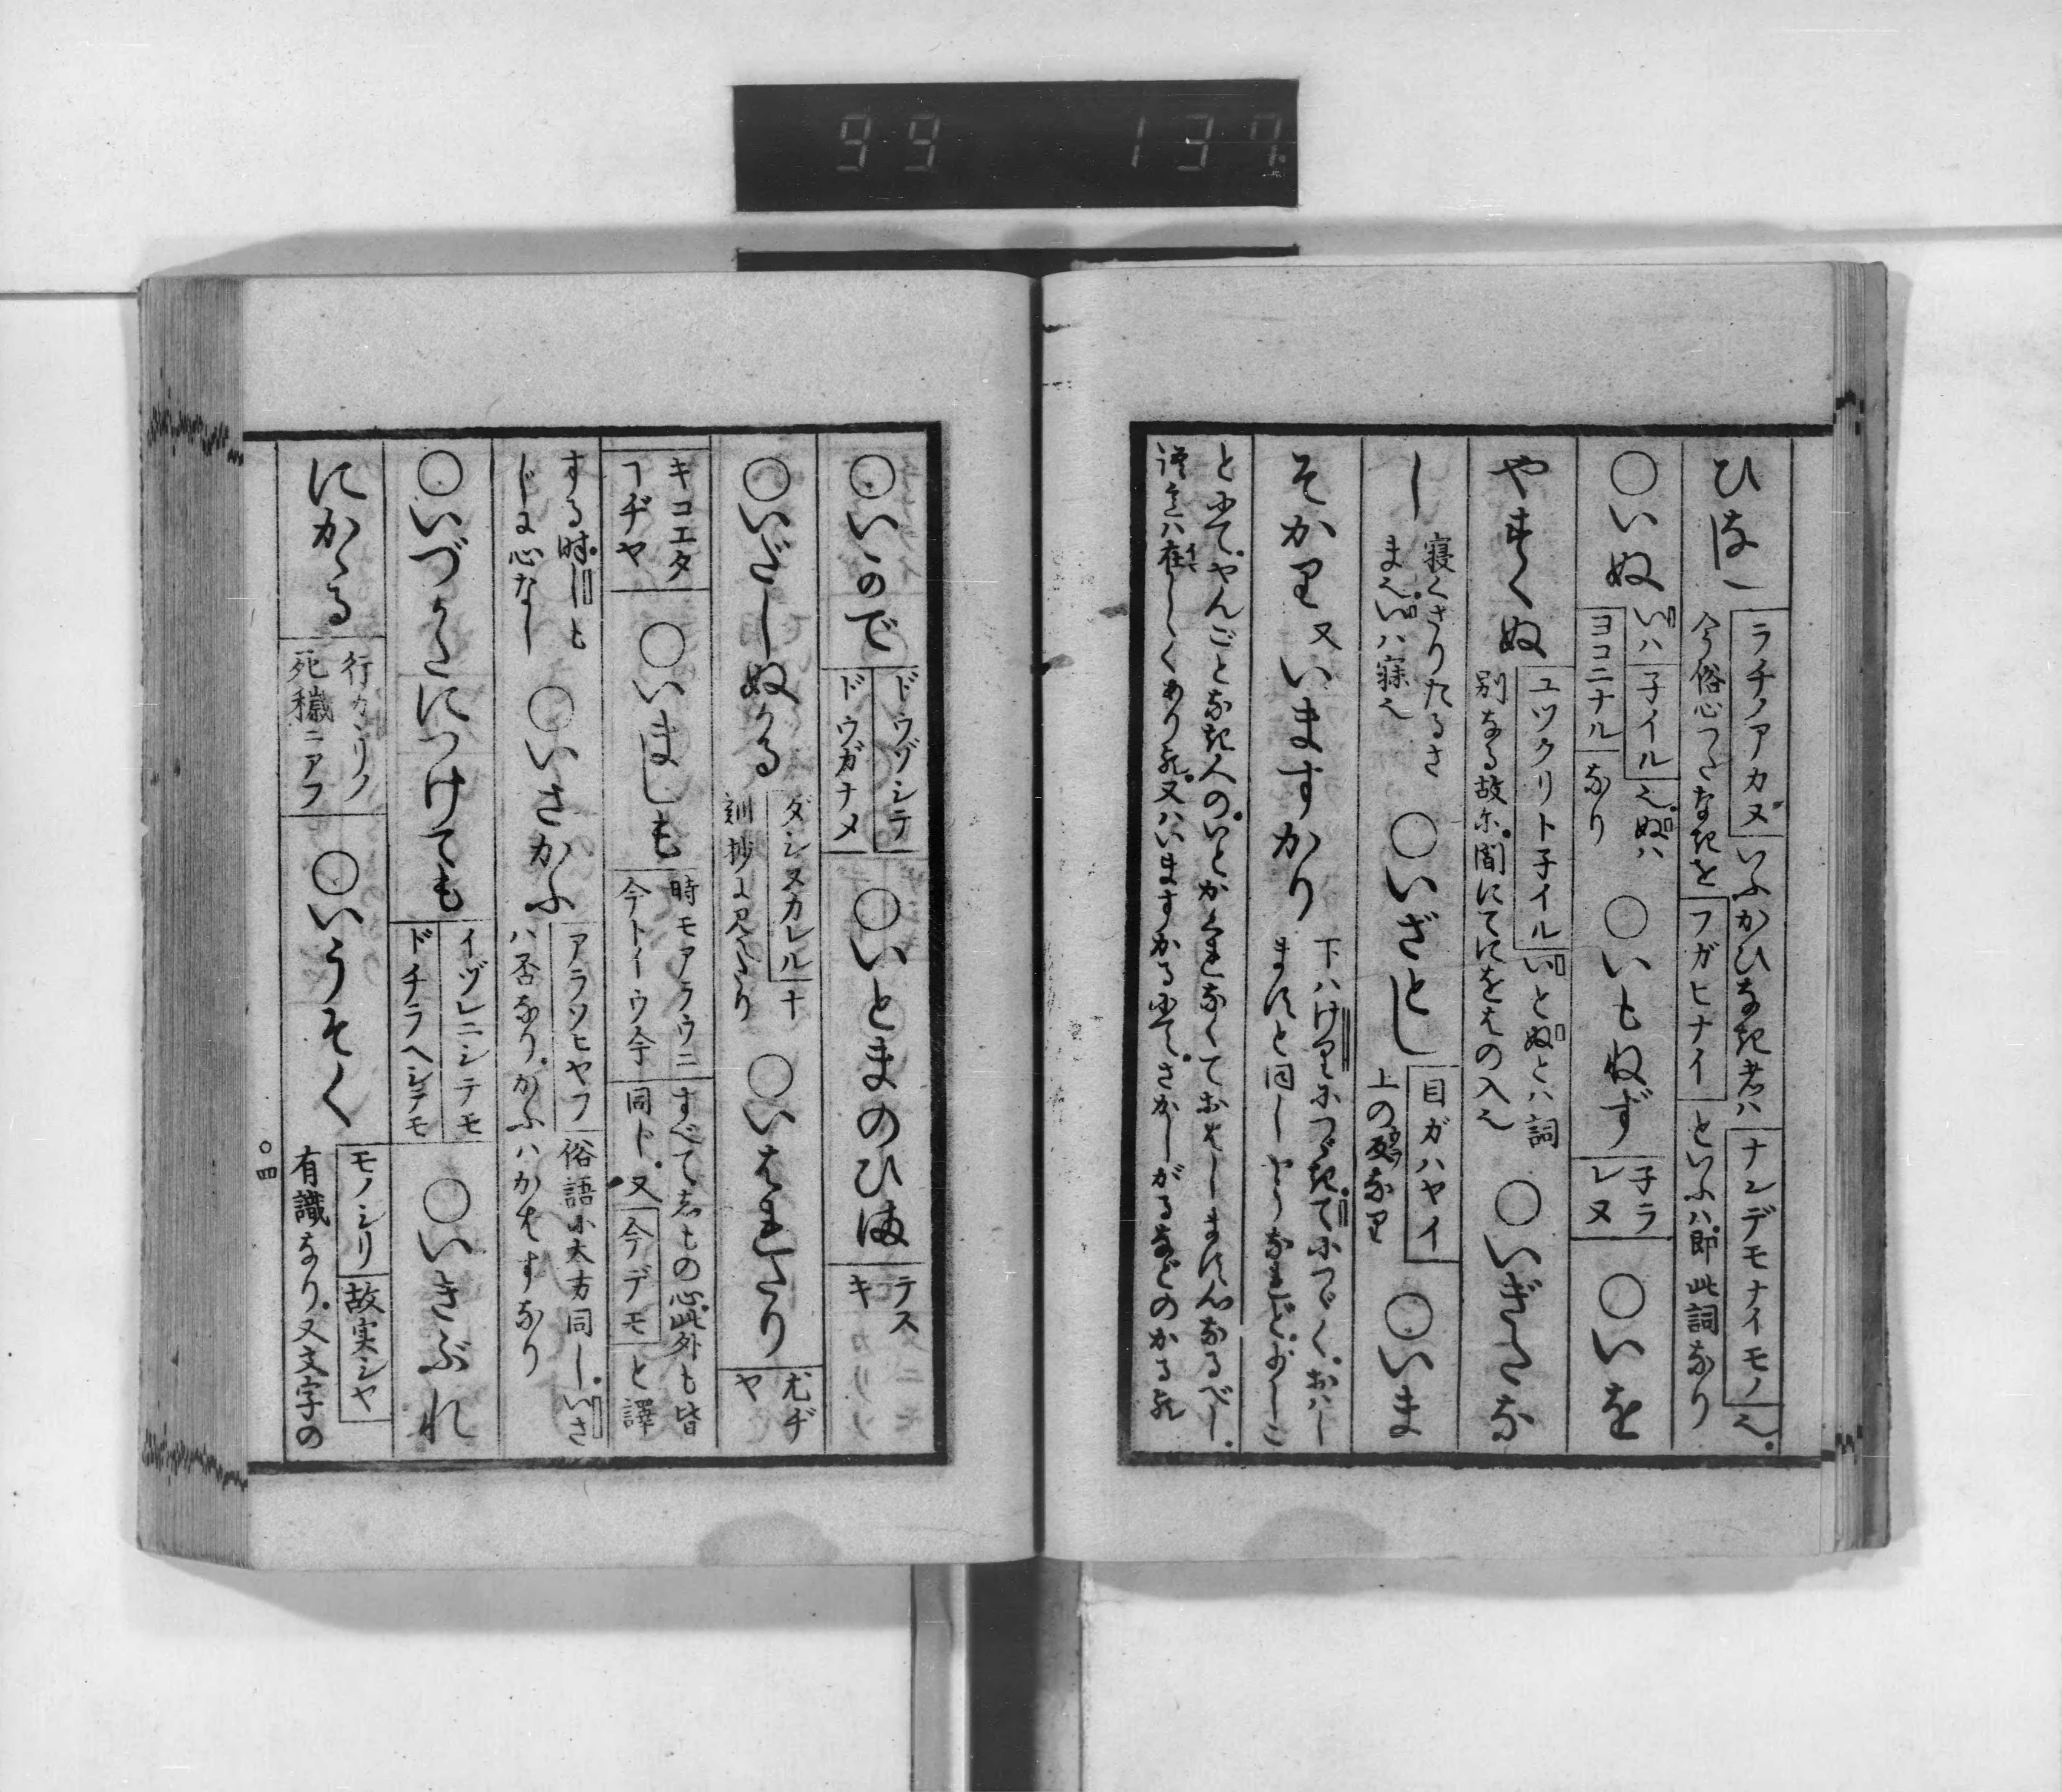 99 137
ひなし
ラチノアカヌ
いふかひなき者ハ
ナンデモナイモノ
也
今俗心つたなきを
フガヒナイ
といふハ即此詞なり
○いぬ
いハ
子イル
也ぬハ
ヨコニナル
なり
○いもねず
子ラ
レヌ
○いを
やすくぬ
ユツクリト子イル
いとぬとハ詞
別なる故に間にてにをはの入也
○いぎたな
し
寝くさりたるさ
ま也いハ寐也
○いざとし
目ガハヤイ
上の反なり
○いま
そかり
又
いますかり
下ハけりにつゞきてにつゞくおハし
ますと同し
とみてやんごとなき人のいとかくれなくておはしまさんなるべし
又ハいますかるにてさかしがるなどのかる
○いかので
ドウゾシテ
ドウガナメ
○いとまのひま
テス
キ
○いだしぬかる
ダシヌカレル
十
訓抄に見えたり
○いはれたり
尤ヂ
ヤ
キコエタ
ヿヂヤ
○いましも
時モアラウニ
今トイウ今
すべてしもの心此外も皆
同ド又
今デモ
と譯
する時しも
じに心なし
○いさかふ
アラソヒヤフ
俗語に大方同しいさ
ハ否なりかふハかはすなり
○いづかたにつけても
イヅレニシテモ
ドチラヘシテモ
○いきぶれ
にかゝる
行カヽリノ
死穢ニアフ
○いうそく
モノシリ
故実シヤ
有識なり又文字の
○四